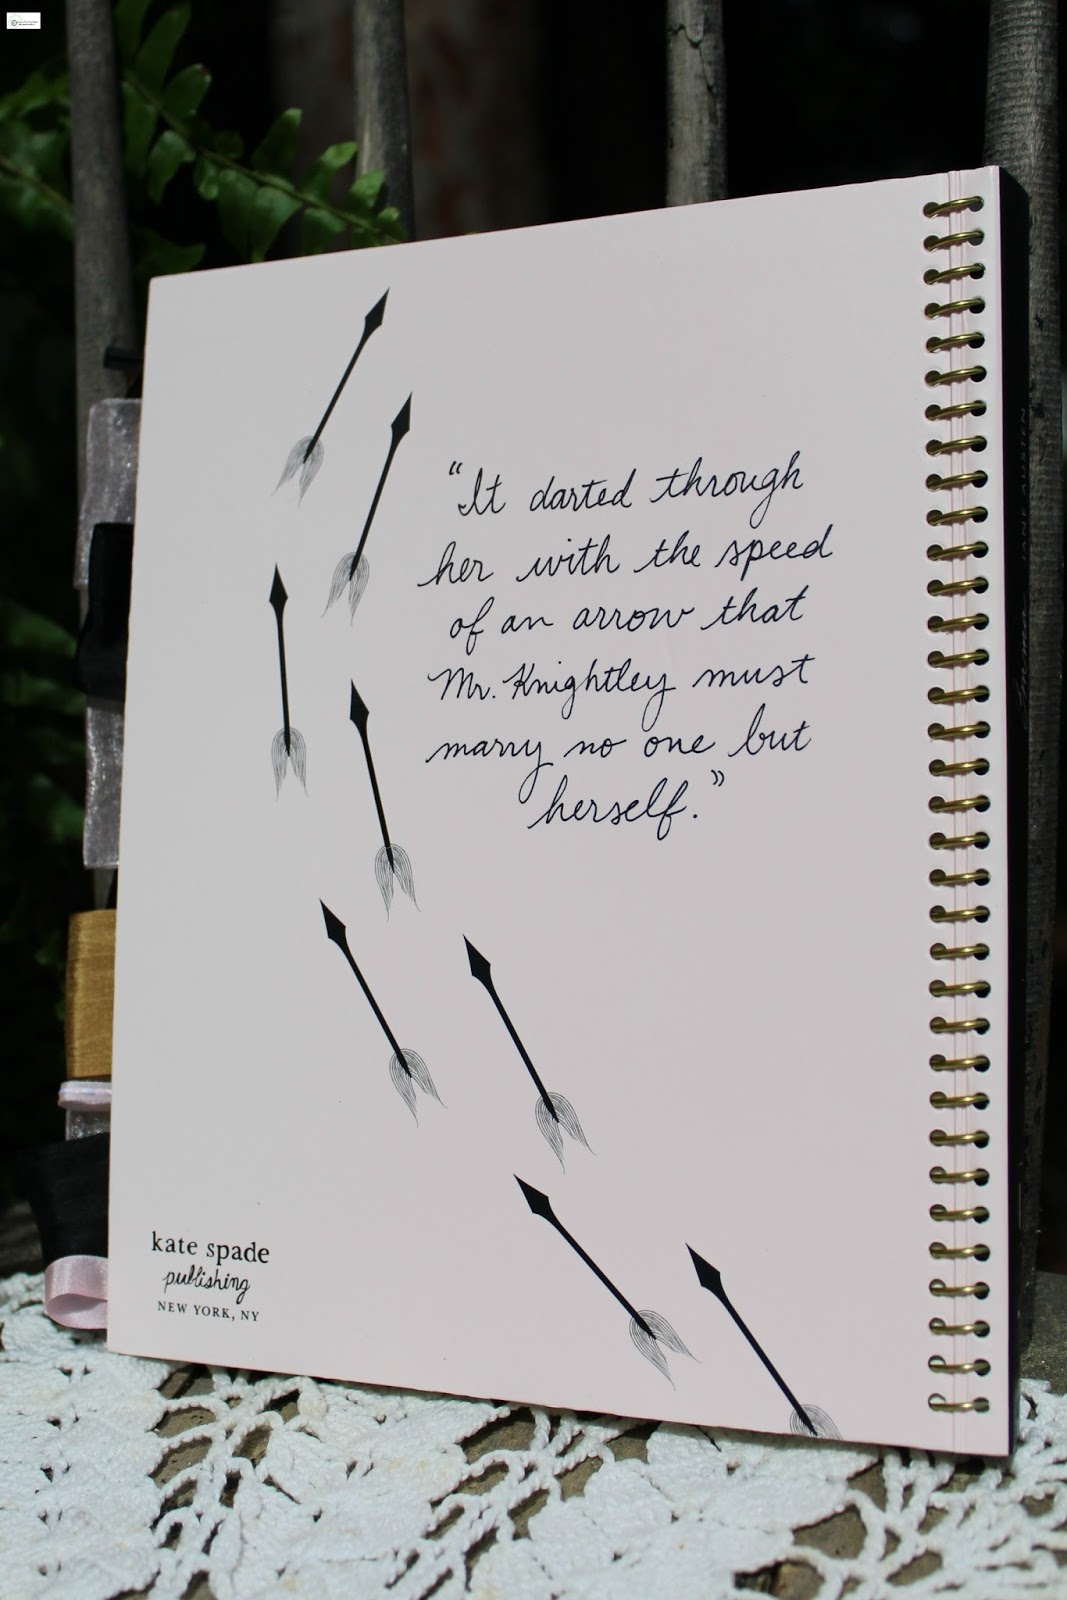 "It darted through
her with the speed
of an arrow that
Mr. Knightley must
marry no one but
herself."
kate spade
publishing
NEW YORK, NY
AUSTEN